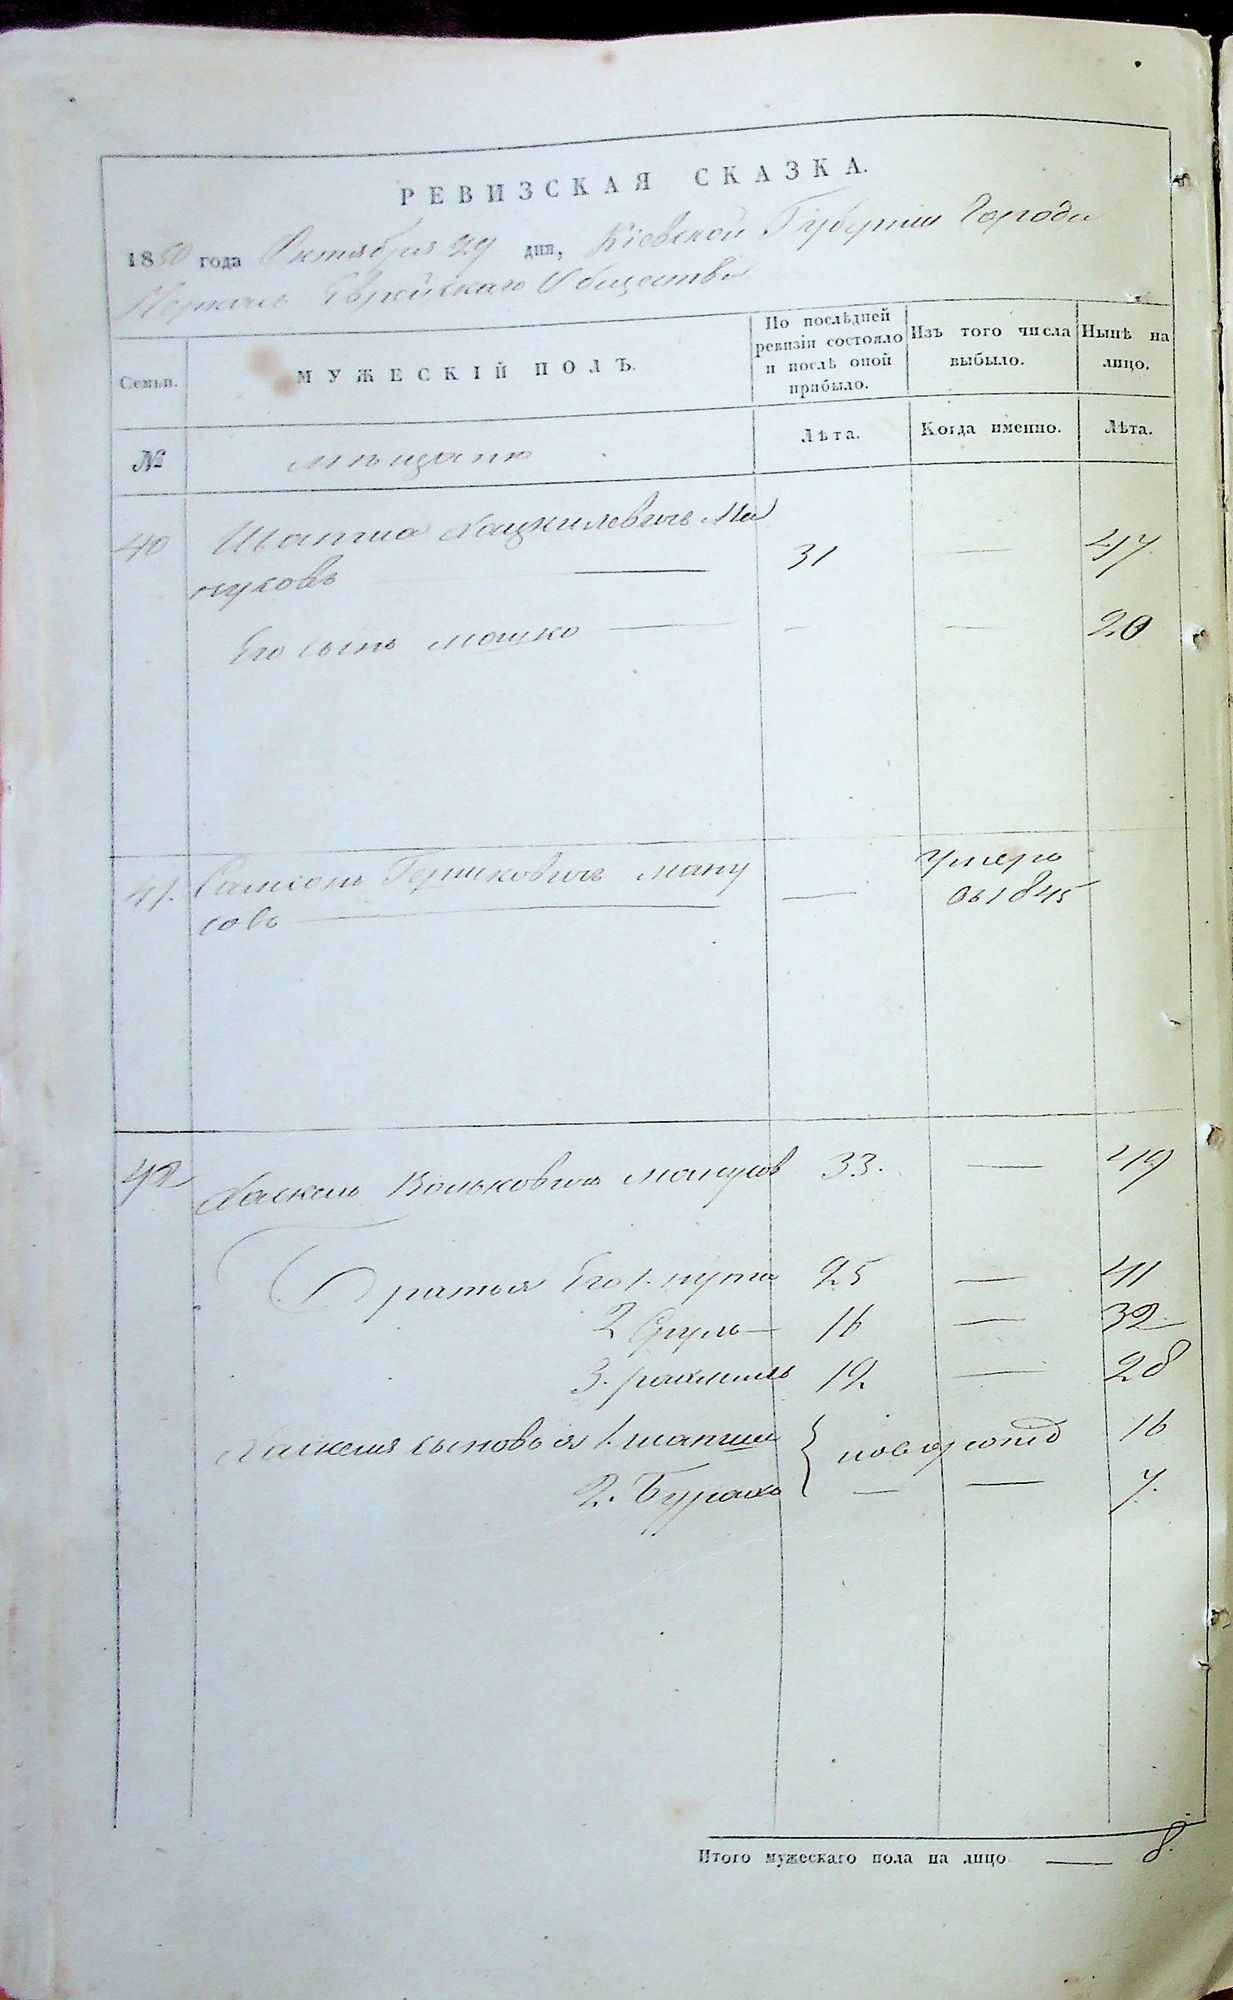 РЕВИЗСКАЯ СКАЗКА.
1850 года Октября 29 дня, Кіевской Губерніи Города
Черкасъ Еврейскаго Общества
Семьи. МУЖЕСКІЙ ПОЛЪ. По послѣдней ревизіи состояло и послѣ оной прибыло. Изъ того числа выбыло. Нынѣ на лицо.
№ мѣщане Лѣта. Когда именно. Лѣта.
40 Хацкилевичъ Ма 31 — 47
нусовъ
Его сынъ Мошко — — 20
41. Самсонъ Гершковичъ Ману — Умеръ
совъ въ 1845
42 Хаскель Вольковичъ Манусов 33. — 49
Братья Его 1. Нута 25 — 41
2 Сруль — 16 — 32
3. Рахмиль 12 — 28
Хаскеля сыновья 1. новорожд 16
2. Бурах — — 7.
Итого мужескаго пола на лицо — 8.